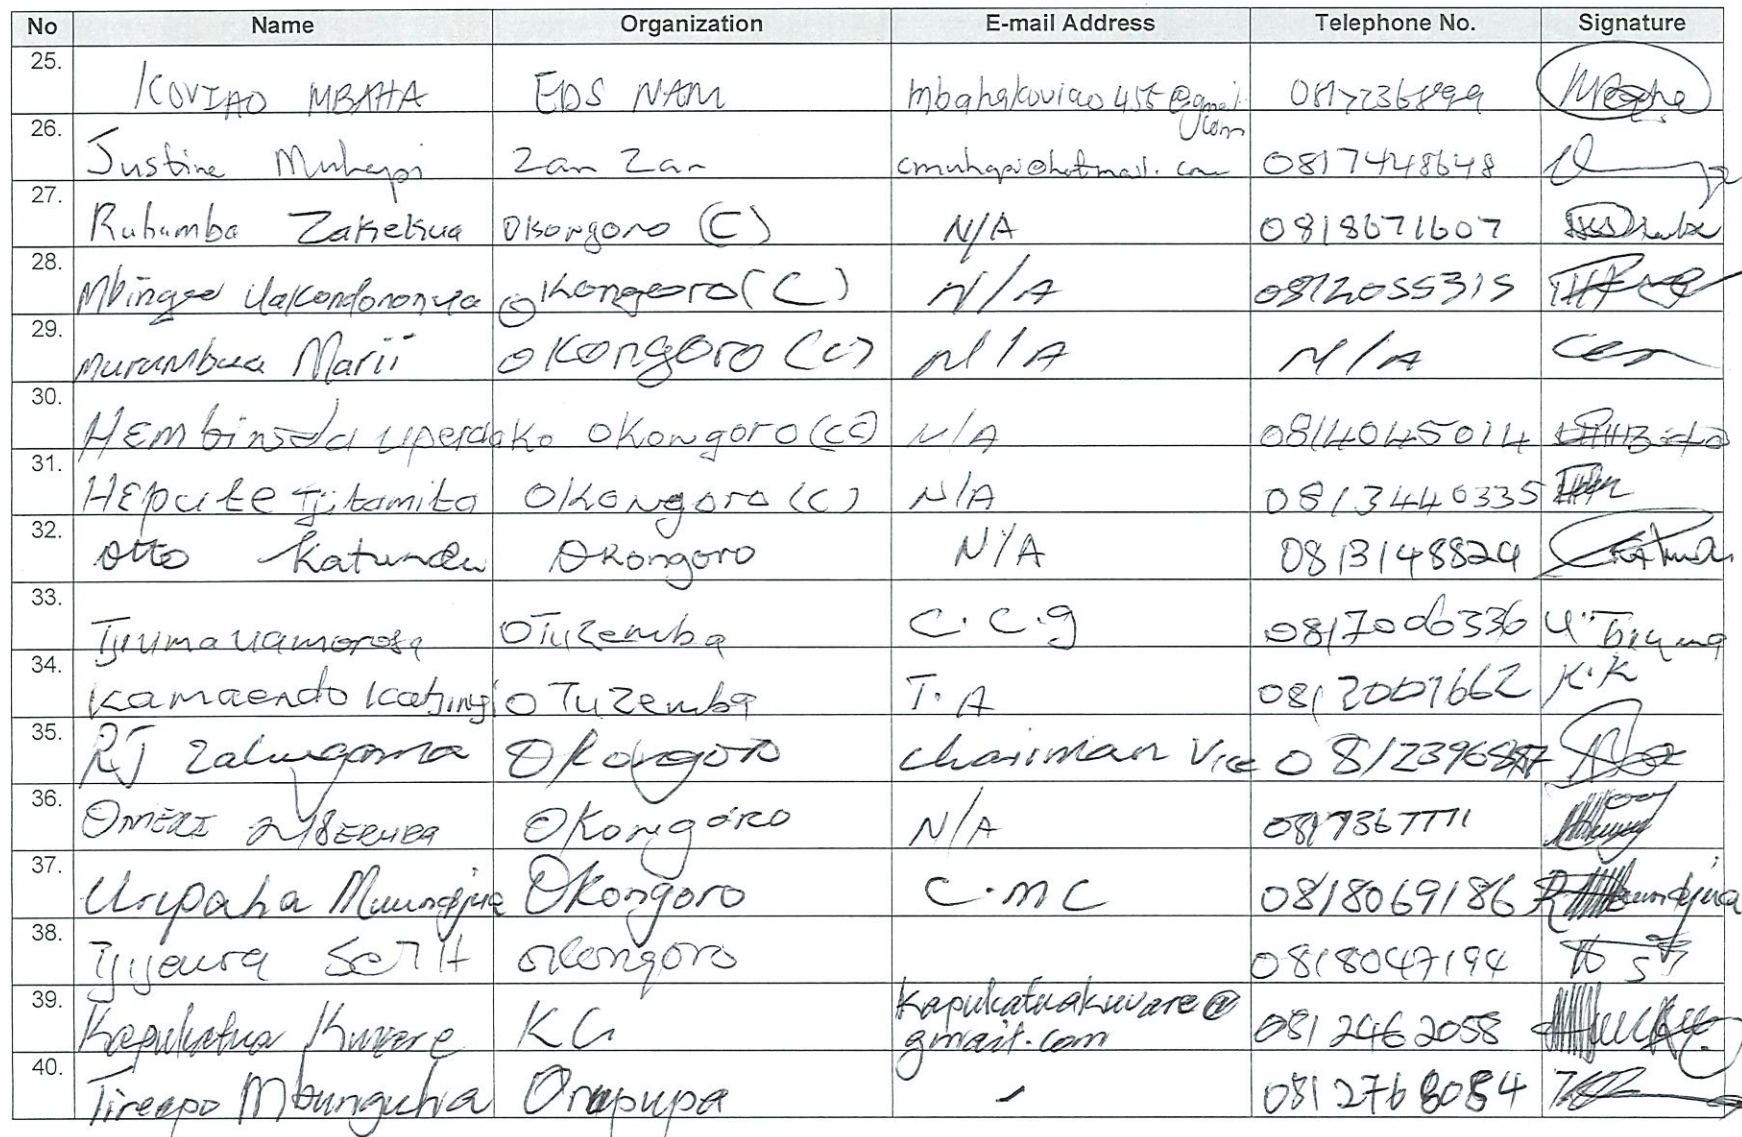 No Name Organization E-mail Address Telephone No. Signature
25. KOVIAO MBAHA EDS NAM mbahakoviao455@gmail.com 0817236899
26. Justine Muhapi Zan Zan cmuhapi@hotmail.com 0817448648
27. Ruhamba Zakekua Okongoro (C) N/A 0818671607
28. Mbingee Uakondononya Okongoro (C) N/A 0812055315
29. Murumbua Marii Okongoro (C) N/A N/A
30. Hembinda uperdako Okongoro (cc) N/A 0814045014
31. HEpute Tjitamita Okongoro (C) N/A 0813440335
32. Otto Katundu Okongoro N/A 0813148824
33. Tjiumauamorosa OTuzemba C.C.g 0817006336
34. Kamaendo Katjingi OTuzemba T.A 0812007662 K.K
35. RJ Okongoro chairman Vice
36. OMERI Okongoro N/A
37. Uripaha Muundjua Okongoro C.MC 0818069186
38. Tjijeura SETH Okongoro 0818047194
39. Kapukatua Kuvare KC Kapukatuakuvare@
gmail.com 0812462058
40. Tireepo Mbunguha Orupupa - 0812768084